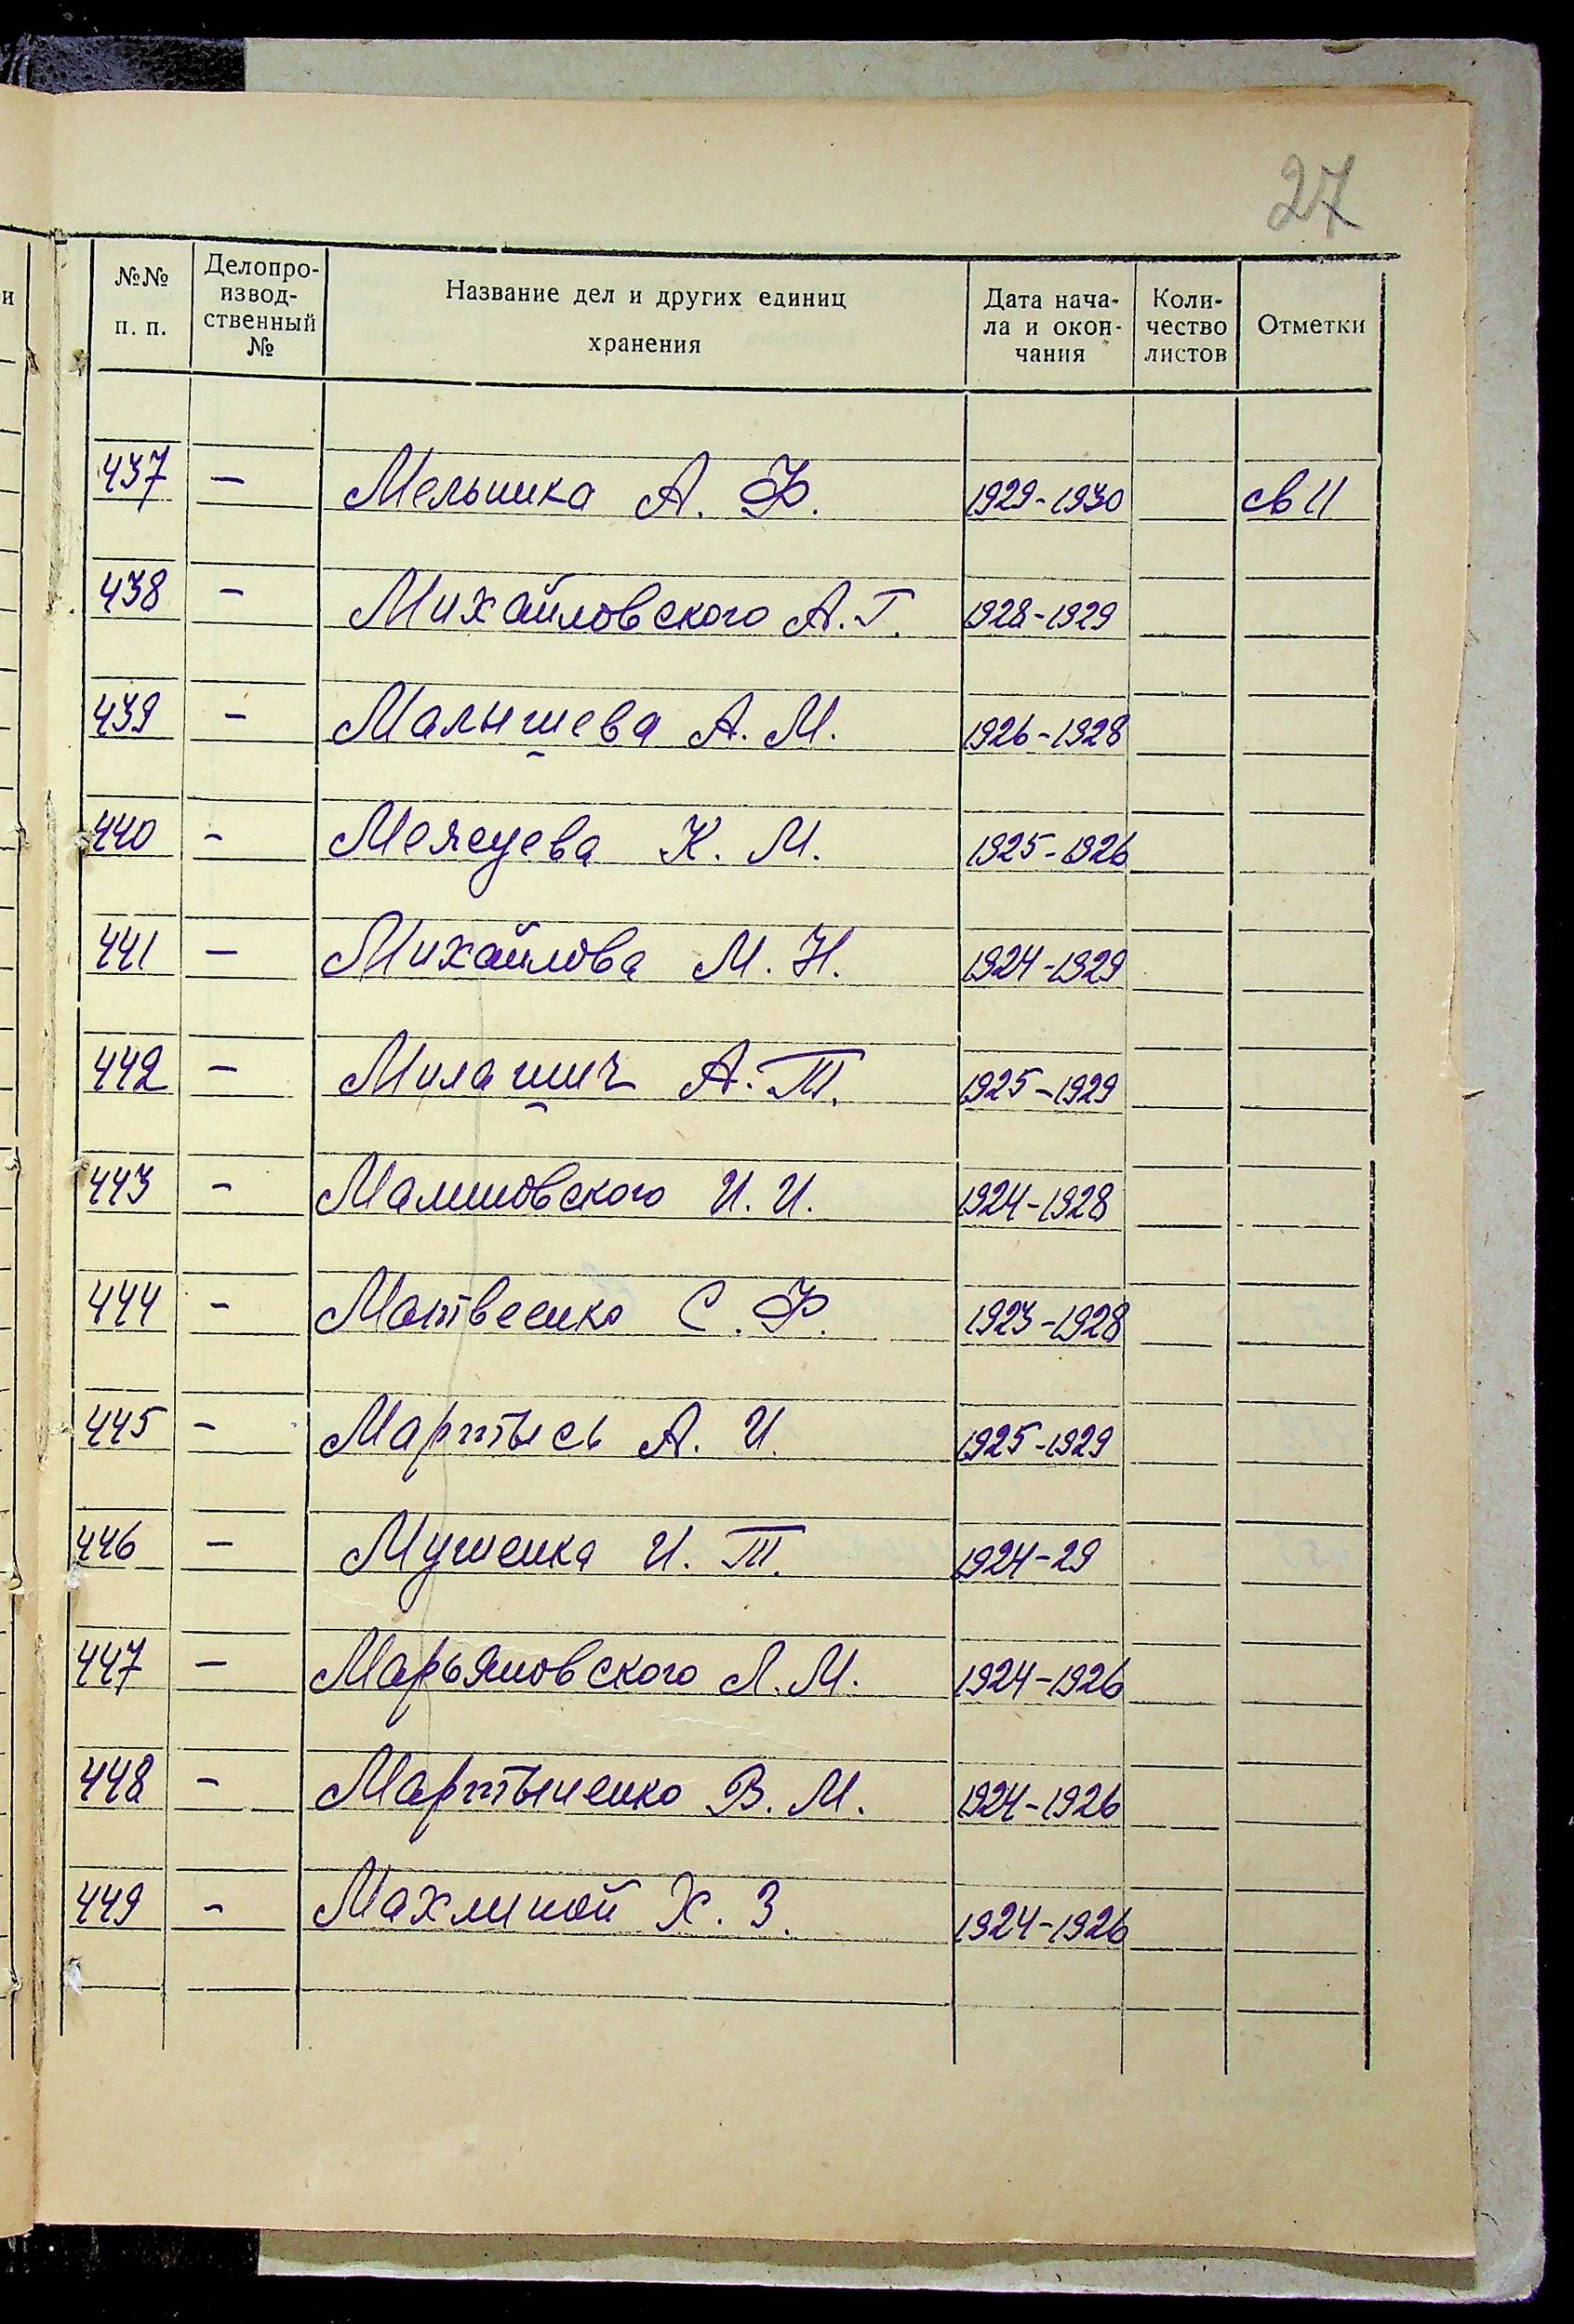 27
№№ п. п. Делопро-извод-ственный № Название дел и других единиц хранения Дата нача-ла и окон-чания Коли-чество листов Отметки
437 — Мельника А. Ф. 1929-1930 св 11
438 — Михайловского А. Г. 1928-1929
439 — Малышева А. М. 1926-1928
440 — К. М. 1925-1926
441 — Михайлова М. Н. 1924-1929
442 — Милашич А. Т. 1925-1929
443 — Малиновского И. И. 1924-1928
444 — Матвеенко С. Ф. 1923-1928
445 — Мартысь А. И. 1925-1929
446 — Мушенка И. Т. 1924-29
447 — Марьяновского Л. М. 1924-1926
448 — Мартыненко В. М. 1924-1926
449 — Махлиной Х. З. 1924-1926